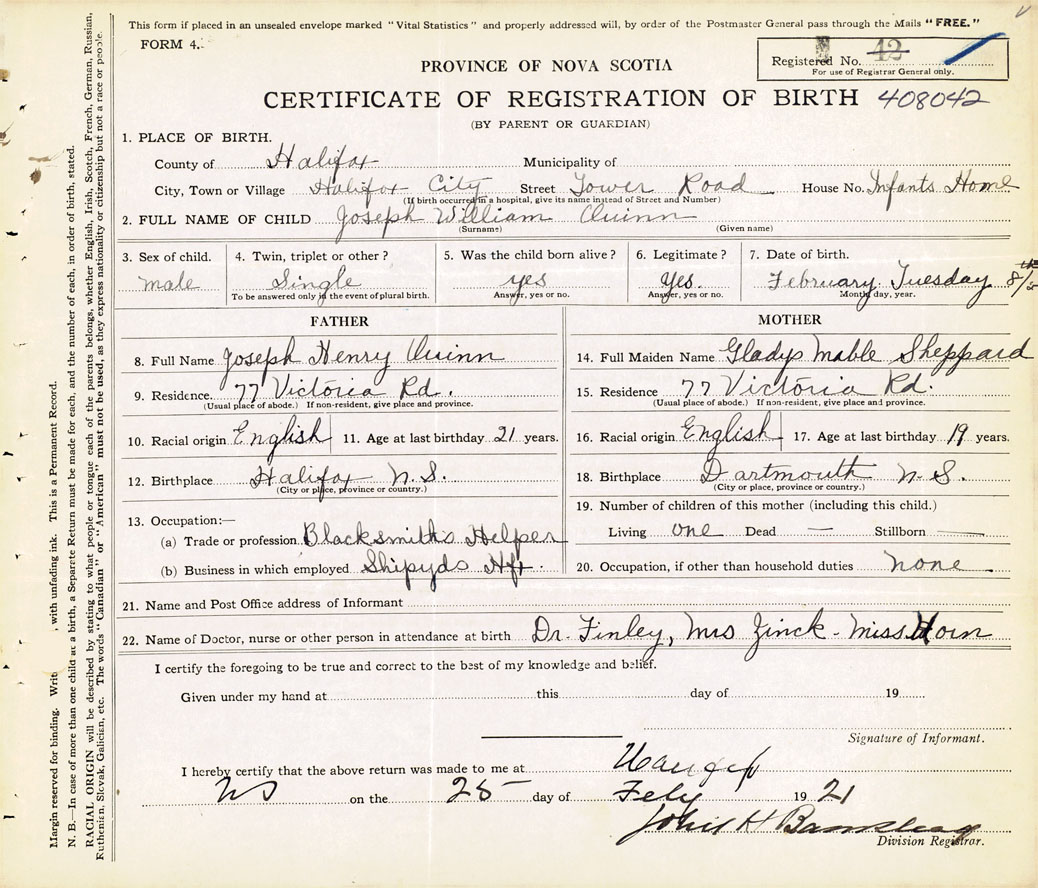 This form if placed in an unsealed envelope marked "Vital Statistics" and properly addressed will, by order of the Postmaster General pass through the Mails "FREE."
FORM 4.
Registered No. 42
For use of Registrar General only.
PROVINCE OF NOVA SCOTIA
CERTIFICATE OF REGISTRATION OF BIRTH 408042
(BY PARENT OR GUARDIAN)
1. PLACE OF BIRTH.
County of Halifax Municipality of
City, Town or Village Halifax City Street Tower Road House No. Infants Home
(If birth occurred in a hospital, give its name instead of Street and Number)
2. FULL NAME OF CHILD Joseph William Quinn
(Surname) (Given name)
3. Sex of child. 4. Twin, triplet or other? 5. Was the child born alive? 6. Legitimate? 7. Date of birth.
male Single yes Yes. February Tuesday 8th
To be answered only in the event of plural birth. Answer, yes or no. Answer, yes or no. Month, day, year.
FATHER
8. Full Name Joseph Henry Quinn
9. Residence. 77 Victoria Rd.
(Usual place of abode.) If non-resident, give place and province.
10. Racial origin English 11. Age at last birthday 21 years.
12. Birthplace Halifax N.S.
(City or place, province or country.)
13. Occupation:—
(a) Trade or profession Blacksmith's Helper
(b) Business in which employed Shipyds Hfx.
MOTHER
14. Full Maiden Name Gladys Mable Sheppard
15. Residence 77 Victoria Rd.
(Usual place of abode.) If non-resident, give place and province.
16. Racial origin English 17. Age at last birthday 19 years.
18. Birthplace Dartmouth N.S.
(City or place, province or country.)
19. Number of children of this mother (including this child.)
Living one Dead — Stillborn —
20. Occupation, if other than household duties none
21. Name and Post Office address of Informant
22. Name of Doctor, nurse or other person in attendance at birth Dr. Finley, Mrs Zinck - Miss Horn
I certify the foregoing to be true and correct to the best of my knowledge and belief.
Given under my hand at this day of 19
Signature of Informant.
I hereby certify that the above return was made to me at Halifax
NS on the 25 day of Feby 1921
John H
Division Registrar.
Margin reserved for binding. with unfading ink. This is a Permanent Record.
N. B.—In case of more than one child at a birth, a Separate Return must be made for each, and the number of each, in order of birth, stated.
RACIAL ORIGIN will be described by stating to what people or tongue each of the parents belongs, whether English, Irish, Scotch, French, German, Russian,
Ruthenian, Slovak, Galician, etc. The words "Canadian" or "American" must not be used, as they express nationality or citizenship but not a race or people.